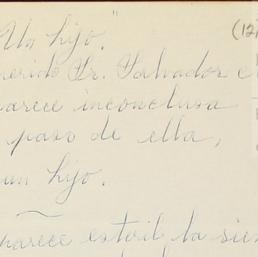 "Un hijo."
(12
querido Sr. Salvador
parece inconclusa
paso de ella,
un hijo.
parece estoril la sie